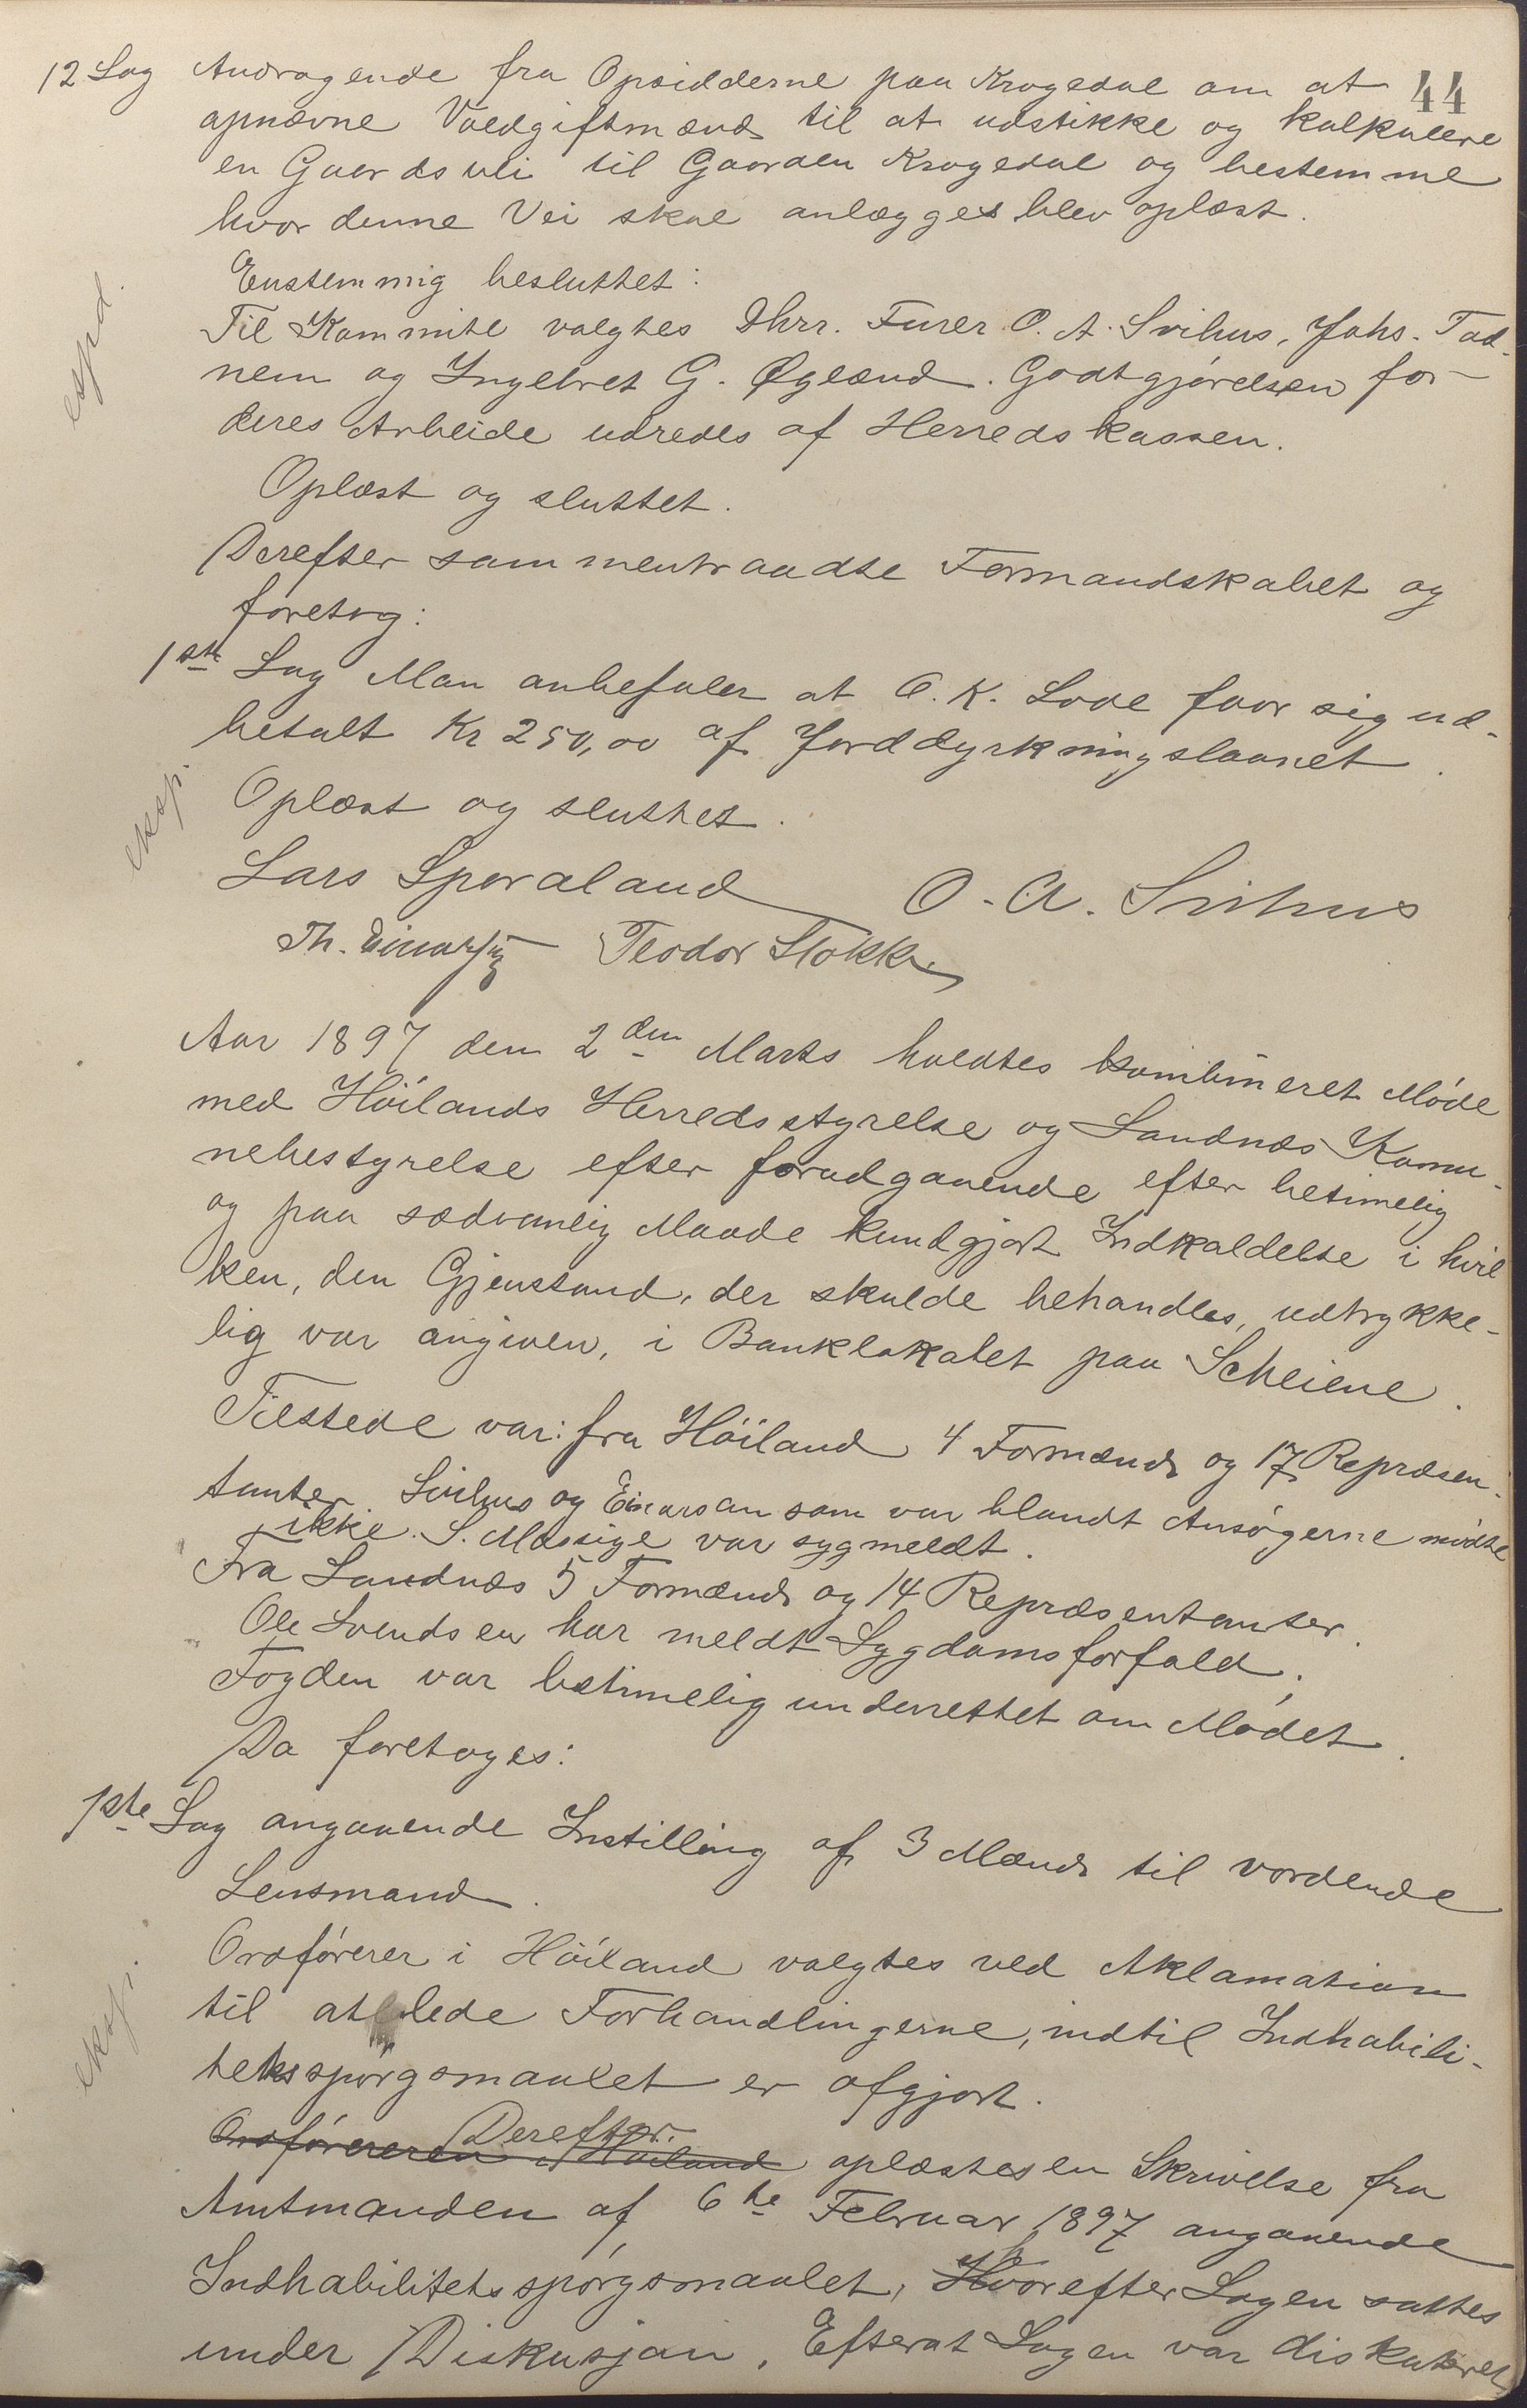 44
12 Sag Andragende fra Opsidderne paa Krogedal om at
opnævne Voldgiftmænd til at udstikke og kalkulere
en Gaardsvei til Gaarden Krogedal og bestemme
hvor denne Vei skal anlægges blev oplæst.
Enstemmig besluttet:
Til Kommite valgtes Dhrr. Furer O. A. Svihus, Johs. Tad-
nem og Ingebret G. Øglænd. Godtgjørelsen for
deres Arbeide udredes af Herredskassen.
espd.
Oplæst og sluttet.
Derefter sammentraadte Formandskabet og
foretog:
1ste Sag Man anbefaler at O. K. Lode faar sig ud-
betalt Kr 250,00 af Jorddyrkningslaanet.
eksp.
Oplæst og sluttet.
Lars Sporaland O. A. Svihus
Th. Einarsen Teodor Stokke
Aar 1897 den 2den Marts holdtes kombineret Møde
med Høilands Herredsstyrelse og Sandnæs Kommu-
nebestyrelse efter forudgaaende efter betimelig
og paa sædvanlig Maade kundgjort Indkaldelse i hvil
ken, den Gjenstand, der skulde behandles, udtrykke-
lig var angiven, i Banklokalet paa Scheiene.
Tilstede var: fra Høiland 4 Formænd og 17 Repræsen-
tanter. Svihus og Einarsan som var blandt Ansøgerne mødte
ikke. S. Massige var sygmeldt.
Fra Sandnæs 5 Formænd og 14 Repræsentanter.
Ole Svendsen har meldt Sygdomsforfald.
Fogden var betimelig underrettet om Mødet.
Da foretoges:
1ste Sag angaaende Instilling af 3 Mænd til vordende
Lensmand.
Ordfører i Høiland valgtes ved Aklamation
til at lede Forhandlingerne, indtil Indhabili-
tetsspørgsmaalet er afgjort.
eksp.
Derefter
Ordføreren i Høiland oplæstes en Skrivelse fra
Amtmanden af 6te Februar 1897 angaaende
Indhabilitetsspørgsmaalet, Hvorefter Sagen sattes
under Diskusjon. Efterat Sagen var diskuteret,